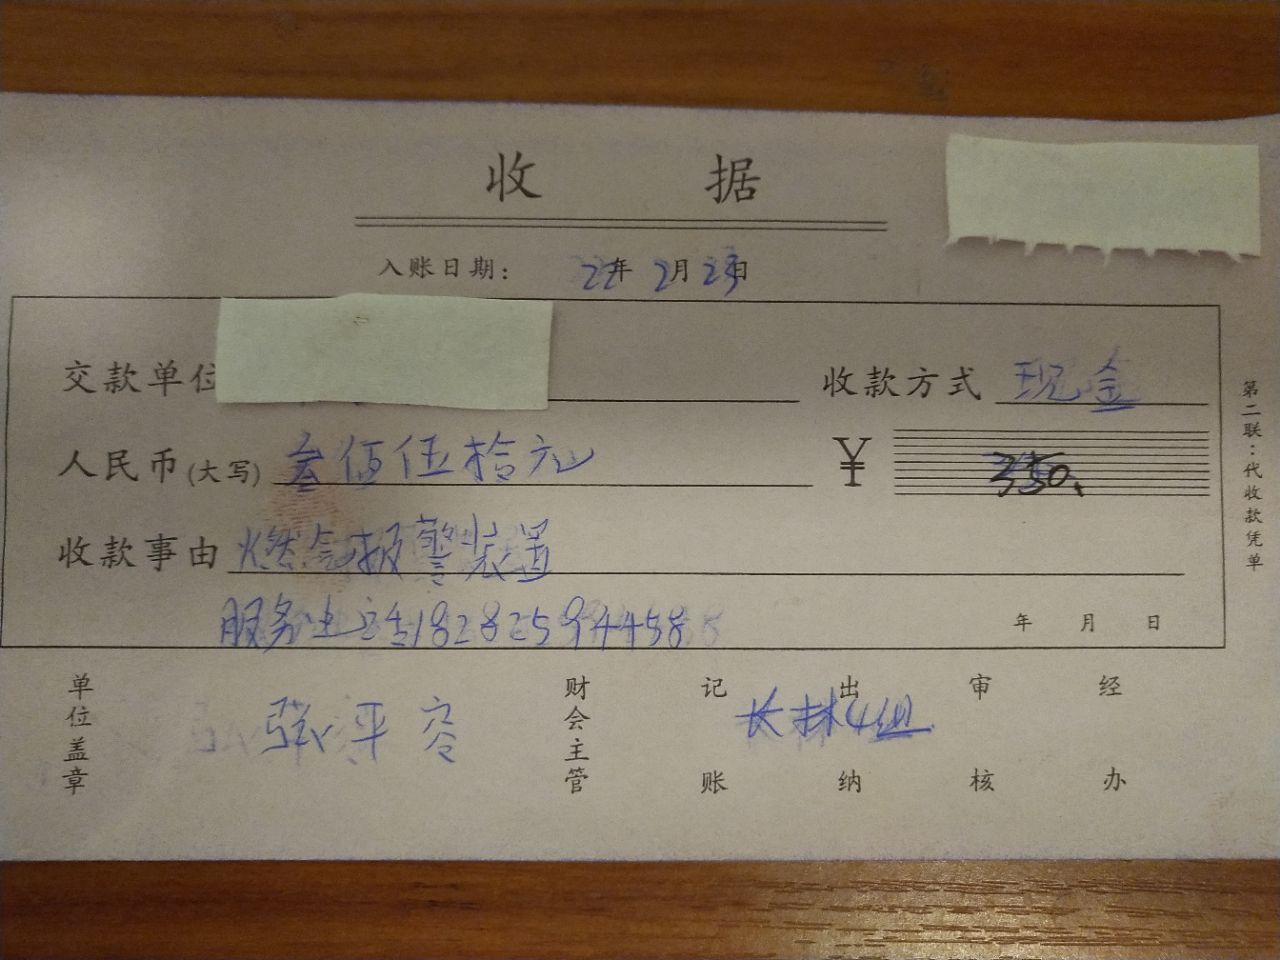 收 据
入账日期： 22年 2月 23日
交款单位 收款方式 现金
人民币(大写) 叁佰伍拾元 ¥ 350.
收款事由 燃气报警装置
服务电话18282594458 年 月 日
单位盖章 张平容 财会主管 记账 出纳 审核 经办
长林4组
第二联：代收款凭单